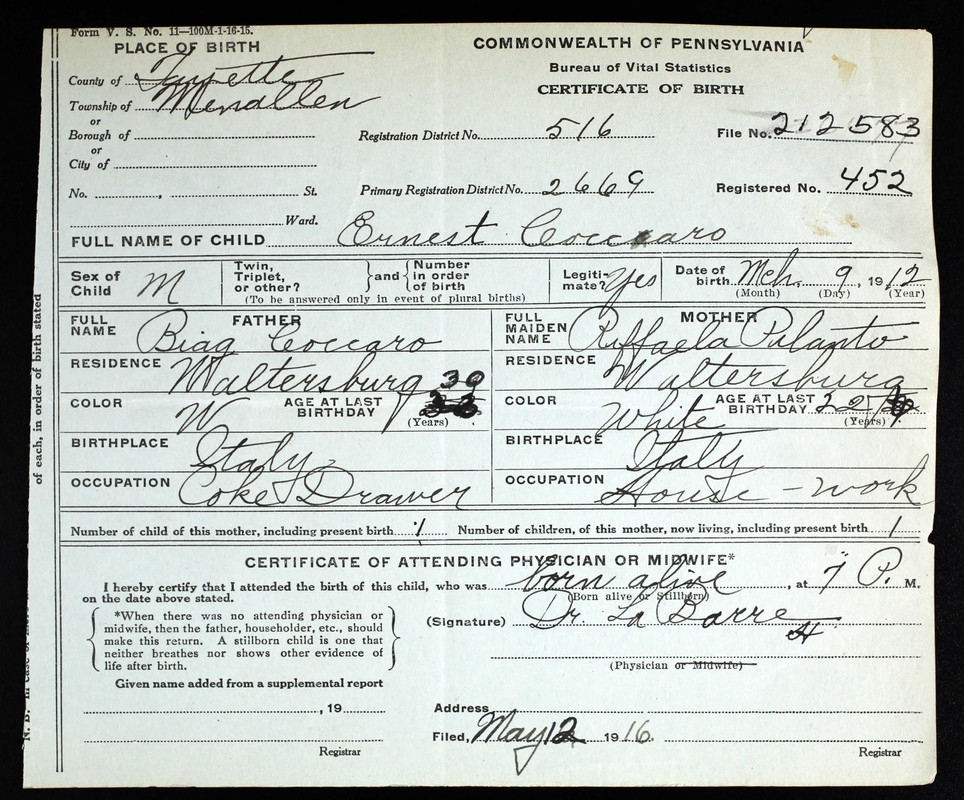 Form V. S. No. 11—100M-1-16-15.
PLACE OF BIRTH
County of Fayette
Township of Menallen
or
Borough of
or
City of
No. , St.
Ward.
COMMONWEALTH OF PENNSYLVANIA
Bureau of Vital Statistics
CERTIFICATE OF BIRTH
Registration District No. 516
File No. 212583
Primary Registration District No. 2669
Registered No. 452
FULL NAME OF CHILD Ernest Coccaro
Sex of Child M
Twin, Triplet, or other? } and { Number in order of birth
(To be answered only in event of plural births)
Legiti- mate? Yes
Date of birth Mch. 9, 1912
(Month) (Day) (Year)
FATHER
FULL NAME Biag Coccaro
RESIDENCE Waltersburg
COLOR W
AGE AT LAST BIRTHDAY 39
(Years)
BIRTHPLACE Italy
OCCUPATION Coke Drawer
MOTHER
FULL MAIDEN NAME Raffaela Pulanto
RESIDENCE Waltersburg
COLOR White
AGE AT LAST BIRTHDAY
(Years)
BIRTHPLACE Italy
OCCUPATION House-work
Number of child of this mother, including present birth 1
Number of children, of this mother, now living, including present birth 1
CERTIFICATE OF ATTENDING PHYSICIAN OR MIDWIFE*
I hereby certify that I attended the birth of this child, who was born alive, at 7 P. M.
on the date above stated.
(Born alive or Stillborn)
*When there was no attending physician or
midwife, then the father, householder, etc., should
make this return. A stillborn child is one that
neither breathes nor shows other evidence of
life after birth.
(Signature) Dr. La Barre
(Physician or Midwife)
Given name added from a supplemental report
, 19
Registrar
Address
Filed, May 12 1916
Registrar
of each, in order of birth stated